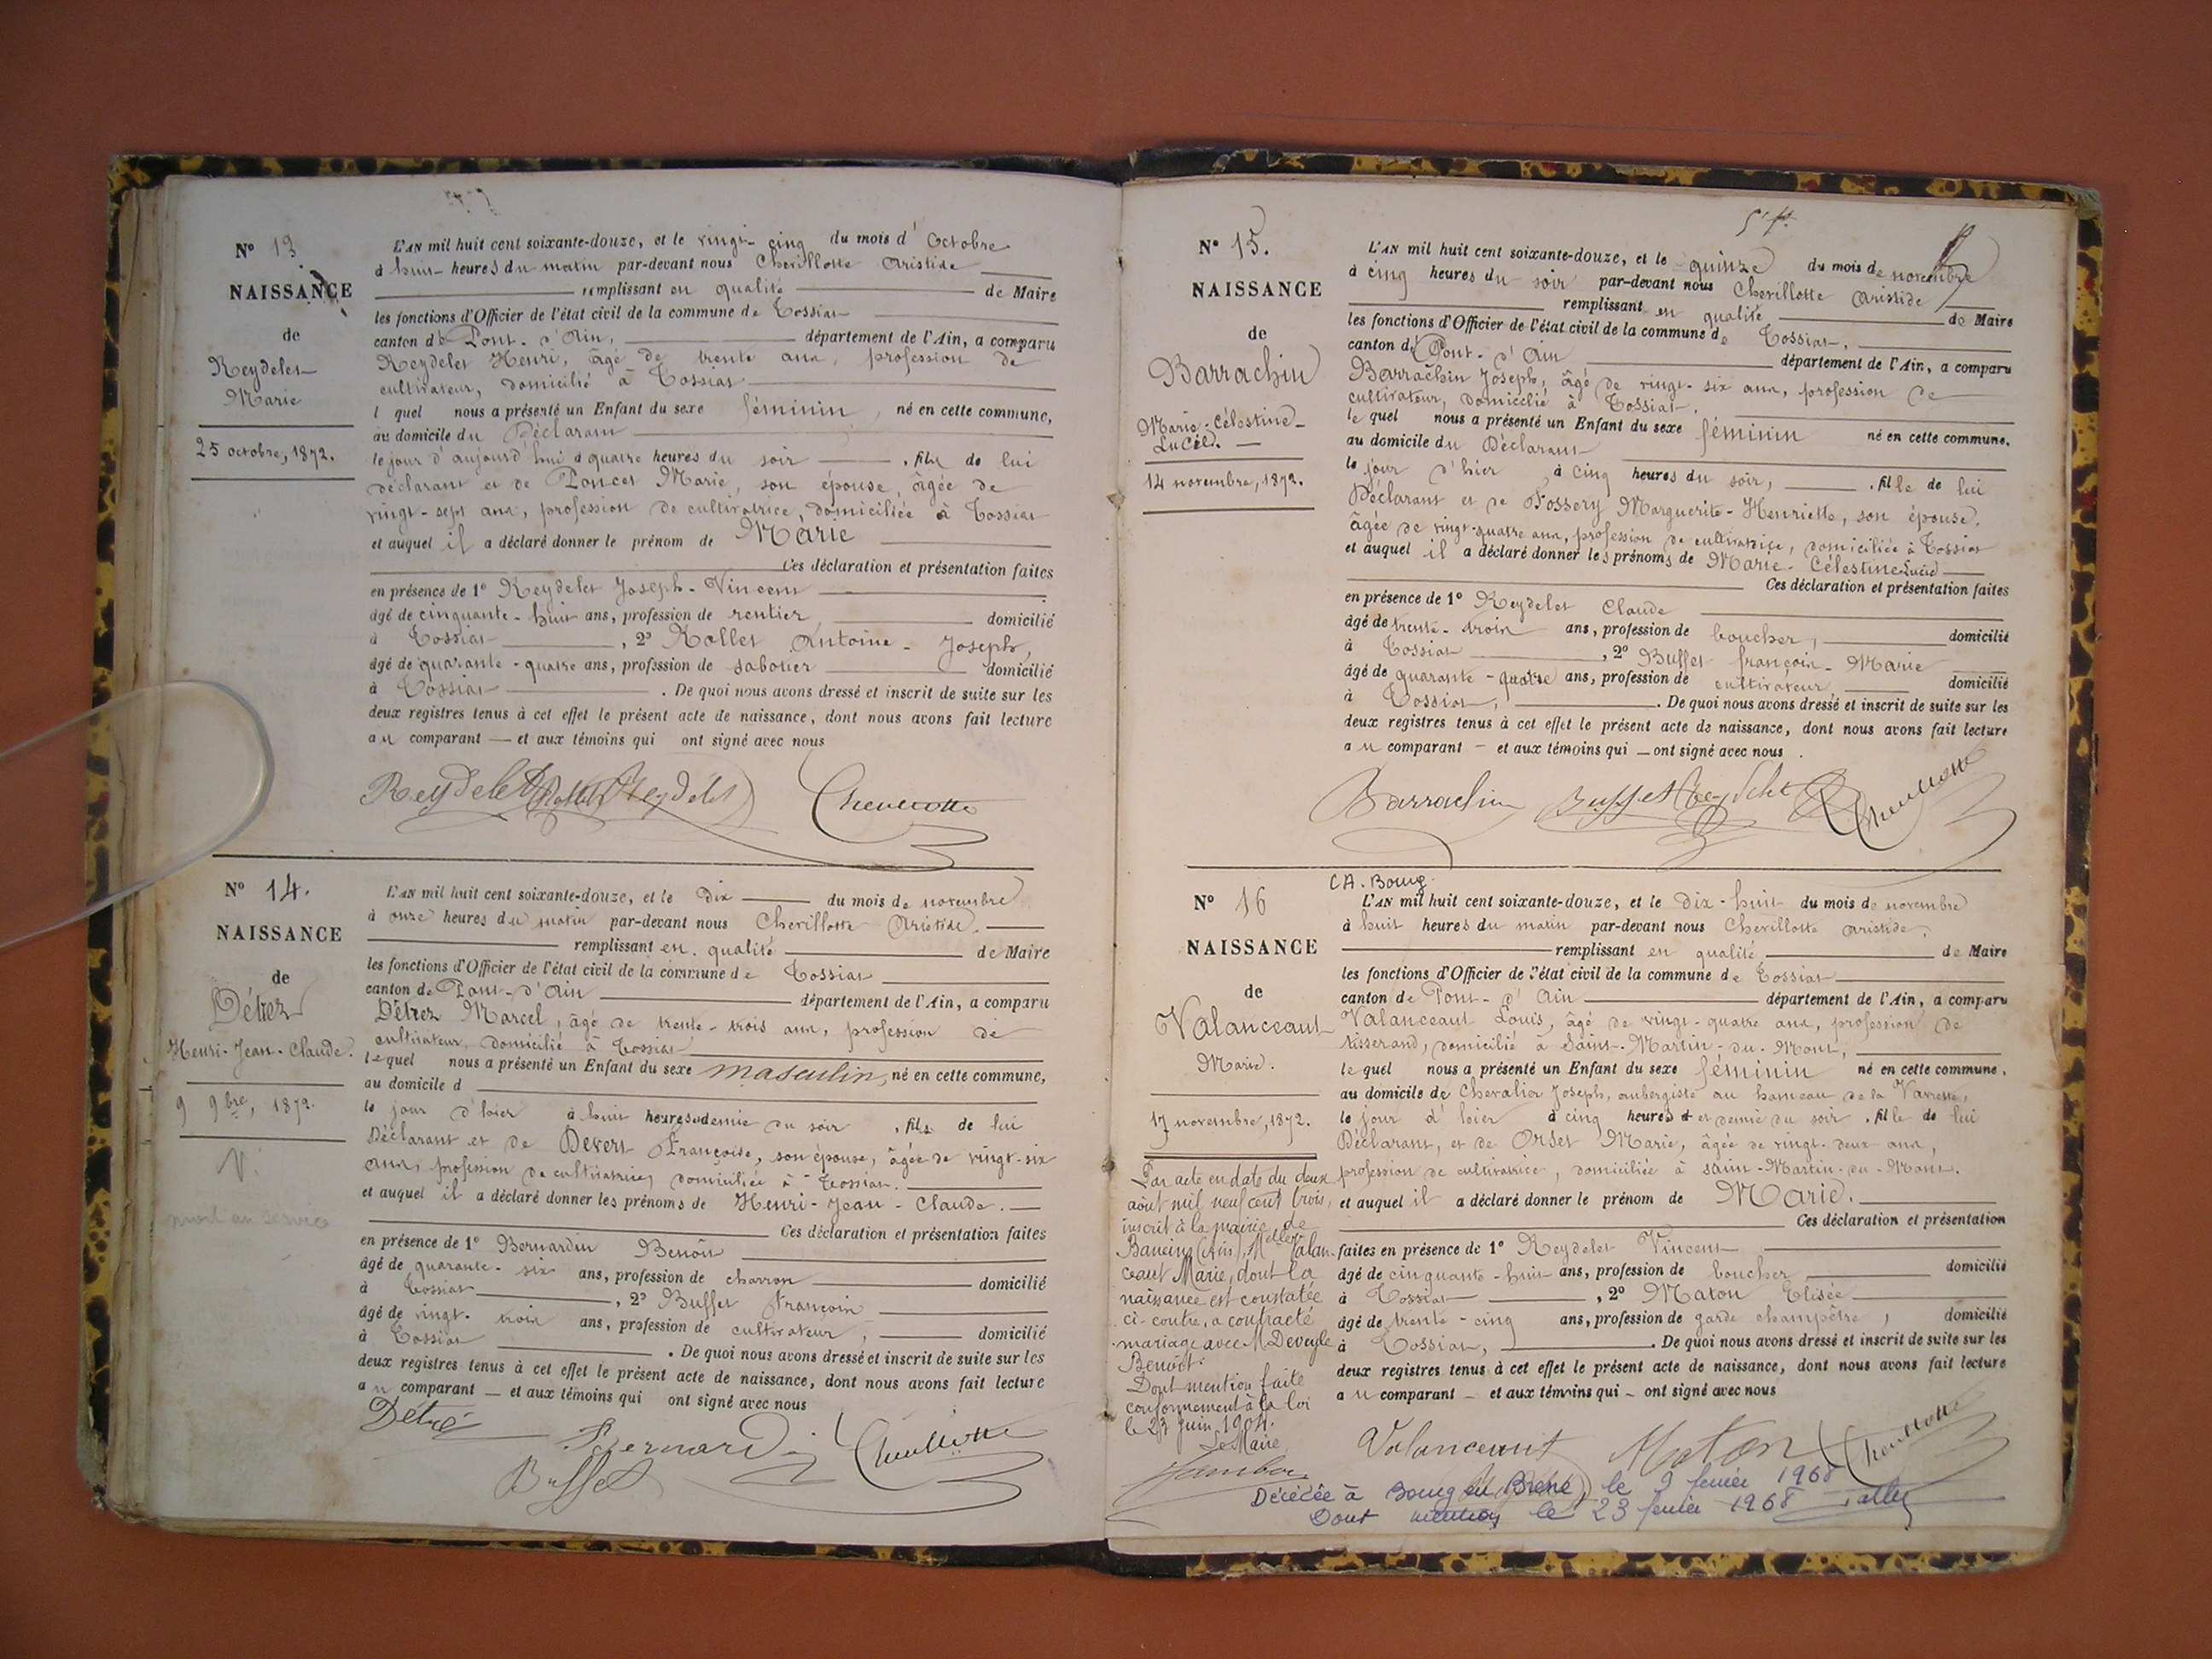 N° 13
NAISSANCE
de
Reydelet
Marie
25 octobre, 1872.
L'AN mil huit cent soixante-douze, et le vingt-cinq du mois d'Octobre
à huit heures du matin par-devant nous Chevillotte Aristide
remplissant en qualité de Maire
les fonctions d'Officier de l'état civil de la commune de Tossiat
canton de Pont-d'Ain, département de l'Ain, a comparu
Reydelet Henri, âgé de trente ans, profession de
cultivateur, domicilié à Tossiat
l quel nous a présenté un Enfant du sexe féminin, né en cette commune,
au domicile du Déclarant
le jour d'aujourd'hui à quatre heures du soir, fille de lui
déclarant et de Poncet Marie, son épouse, âgée de
vingt-sept ans, profession de cultivatrice, domiciliée à Tossiat
et auquel il a déclaré donner le prénom de Marie
Ces déclaration et présentation faites
en présence de 1° Reydelet Joseph-Vincent
âgé de cinquante-huit ans, profession de rentier domicilié
à Tossiat, 2° Rollet Antoine-Joseph,
âgé de quarante-quatre ans, profession de sabotier domicilié
à Tossiat. De quoi nous avons dressé et inscrit de suite sur les
deux registres tenus à cet effet le présent acte de naissance, dont nous avons fait lecture
au comparant — et aux témoins qui ont signé avec nous
Reydelet Rollet Reydelet Chevillotte
N° 14.
NAISSANCE
de
Détrez
Henri-Jean-Claude.
9 9bre, 1872.
V.
mort en service
L'AN mil huit cent soixante-douze, et le dix du mois de novembre
à onze heures du matin par-devant nous Chevillotte Aristide.
remplissant en qualité de Maire
les fonctions d'Officier de l'état civil de la commune de Tossiat
canton de Pont-d'Ain département de l'Ain, a comparu
Détrez Marcel, âgé de trente-trois ans, profession de
cultivateur, domicilié à Tossiat
lequel nous a présenté un Enfant du sexe masculin, né en cette commune,
au domicile d
le jour d'hier à huit heures et demie du soir, fils de lui
Déclarant et de Devert Françoise, son épouse, âgée de vingt-six
ans, profession de cultivatrice, domiciliée à Tossiat.
et auquel il a déclaré donner les prénoms de Henri-Jean-Claude.
Ces déclaration et présentation faites
en présence de 1° Bernardin Benoît
âgé de quarante-six ans, profession de charron domicilié
à Tossiat, 2° Buffet François
âgé de vingt-trois ans, profession de cultivateur, domicilié
à Tossiat. De quoi nous avons dressé et inscrit de suite sur les
deux registres tenus à cet effet le présent acte de naissance, dont nous avons fait lecture
au comparant — et aux témoins qui ont signé avec nous
Détrez Bernardin Chevillotte
Buffet
N° 15.
NAISSANCE
de
Barrachin
Marie-Célestine-
Lucie.
14 novembre, 1872.
L'AN mil huit cent soixante-douze, et le quinze du mois de novembre
à cinq heures du soir par-devant nous Chevillotte Aristide
remplissant en qualité de Maire
les fonctions d'Officier de l'état civil de la commune de Tossiat.
canton de Pont-d'Ain département de l'Ain, a comparu
Barrachin Joseph, âgé de vingt-six ans, profession de
cultivateur, domicilié à Tossiat.
lequel nous a présenté un Enfant du sexe féminin né en cette commune.
au domicile du Déclarant
le jour d'hier, à cinq heures du soir, fille de lui
Déclarant et de Fossery Marguerite-Henriette, son épouse.
âgée de vingt-quatre ans, profession de cultivatrice, domiciliée à Tossiat
et auquel il a déclaré donner les prénoms de Marie-Célestine Lucie
Ces déclaration et présentation faites
en présence de 1° Reydelet Claude
âgé de trente-trois ans, profession de boucher, domicilié
à Tossiat, 2° Buffet François-Marie
âgé de quarante-quatre ans, profession de cultivateur domicilié
à Tossiat. De quoi nous avons dressé et inscrit de suite sur les
deux registres tenus à cet effet le présent acte de naissance, dont nous avons fait lecture
au comparant — et aux témoins qui — ont signé avec nous.
Barrachin Buffet Reydelet Chevillotte
CA. Bourg
N° 16
NAISSANCE
de
Valanceaut
Marie.
17 novembre, 1872.
Par acte en date du deux
août mil neuf cent trois,
inscrit à la mairie de
(Ain), Melle Valan-
ceaut Marie, dont la
naissance est constatée
ci-contre, a contracté
mariage avec M. Deveyle
Benoît.
Dont mention faite
conformément à la loi
le 23 juin 1904.
Le Maire
L'AN mil huit cent soixante-douze, et le dix-huit du mois de novembre
à huit heures du matin par-devant nous Chevillotte Aristide,
remplissant en qualité de Maire
les fonctions d'Officier de l'état civil de la commune de Tossiat
canton de Pont-d'Ain département de l'Ain, a comparu
Valanceaut Louis, âgé de vingt-quatre ans, profession de
tisserand, domicilié à Saint-Martin-du-Mont,
lequel nous a présenté un Enfant du sexe féminin né en cette commune,
au domicile de Chevalier Joseph, aubergiste au hameau de la Vavrette,
le jour d'hier à cinq heures et demie du soir, fille de lui
Déclarant, et de Orset Marie, âgée de vingt-deux ans,
profession de cultivatrice, domiciliée à Saint-Martin-du-Mont.
et auquel il a déclaré donner le prénom de Marie.
Ces déclaration et présentation
faites en présence de 1° Reydelet Vincent
âgé de cinquante-huit ans, profession de boucher domicilié
à Tossiat, 2° Maton Elisée
âgé de trente-cinq ans, profession de garde champêtre, domicilié
à Tossiat, De quoi nous avons dressé et inscrit de suite sur les
deux registres tenus à cet effet le présent acte de naissance, dont nous avons fait lecture
au comparant — et aux témoins qui — ont signé avec nous
Valanceaut Maton Chevillotte
Décédée à Bourg en Bresse, le 9 février 1968
Dont mention le 23 février 1968